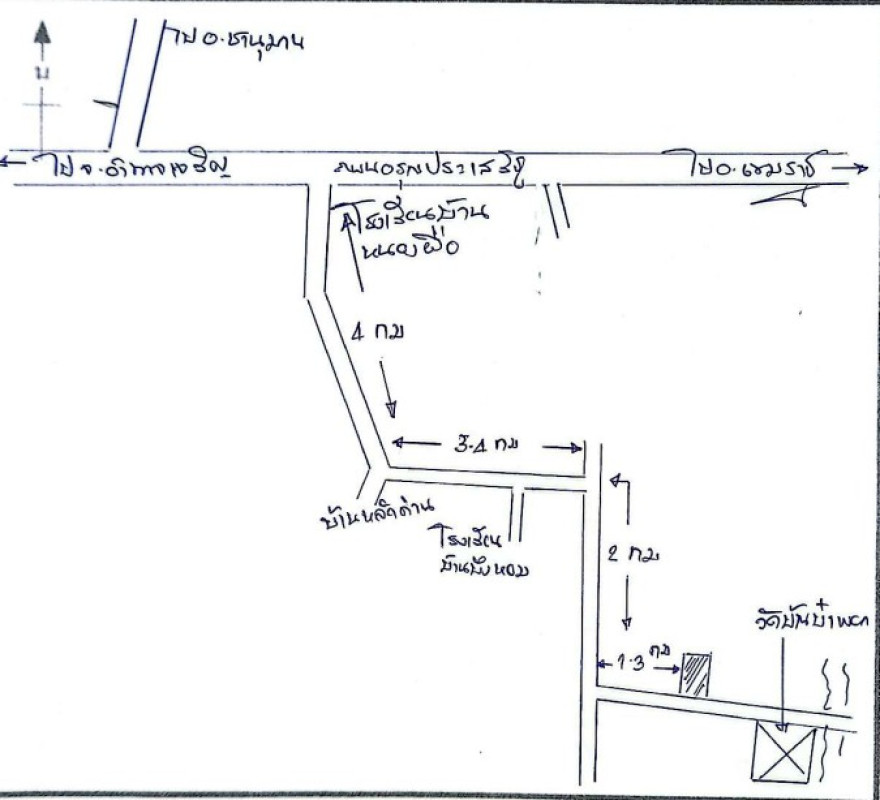 ไป อ.ชานุมาน
น
ไป จ.อำนาจเจริญ
ถนนอรุณประเสริฐ
ไป อ.เขมราฐ
โรงเรียนบ้าน
หนองผือ
4 กม
3.4 กม
บ้านหลักด่าน
โรงเรียน
2 กม
1.3 กม